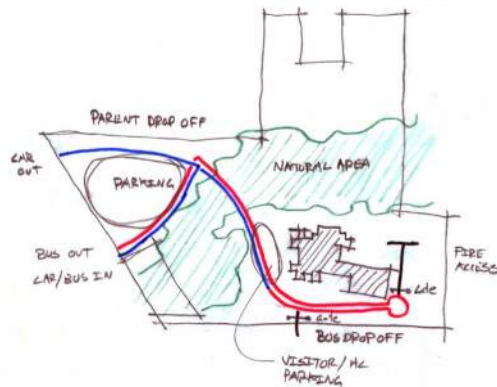 PARENT DROP OFF
CAR
OUT
PARKING
NATURAL AREA
BUS OUT
CAR/BUS IN
FIRE
ACCESS
GATE
GATE
BUS DROP OFF
VISITOR/HC
PARKING